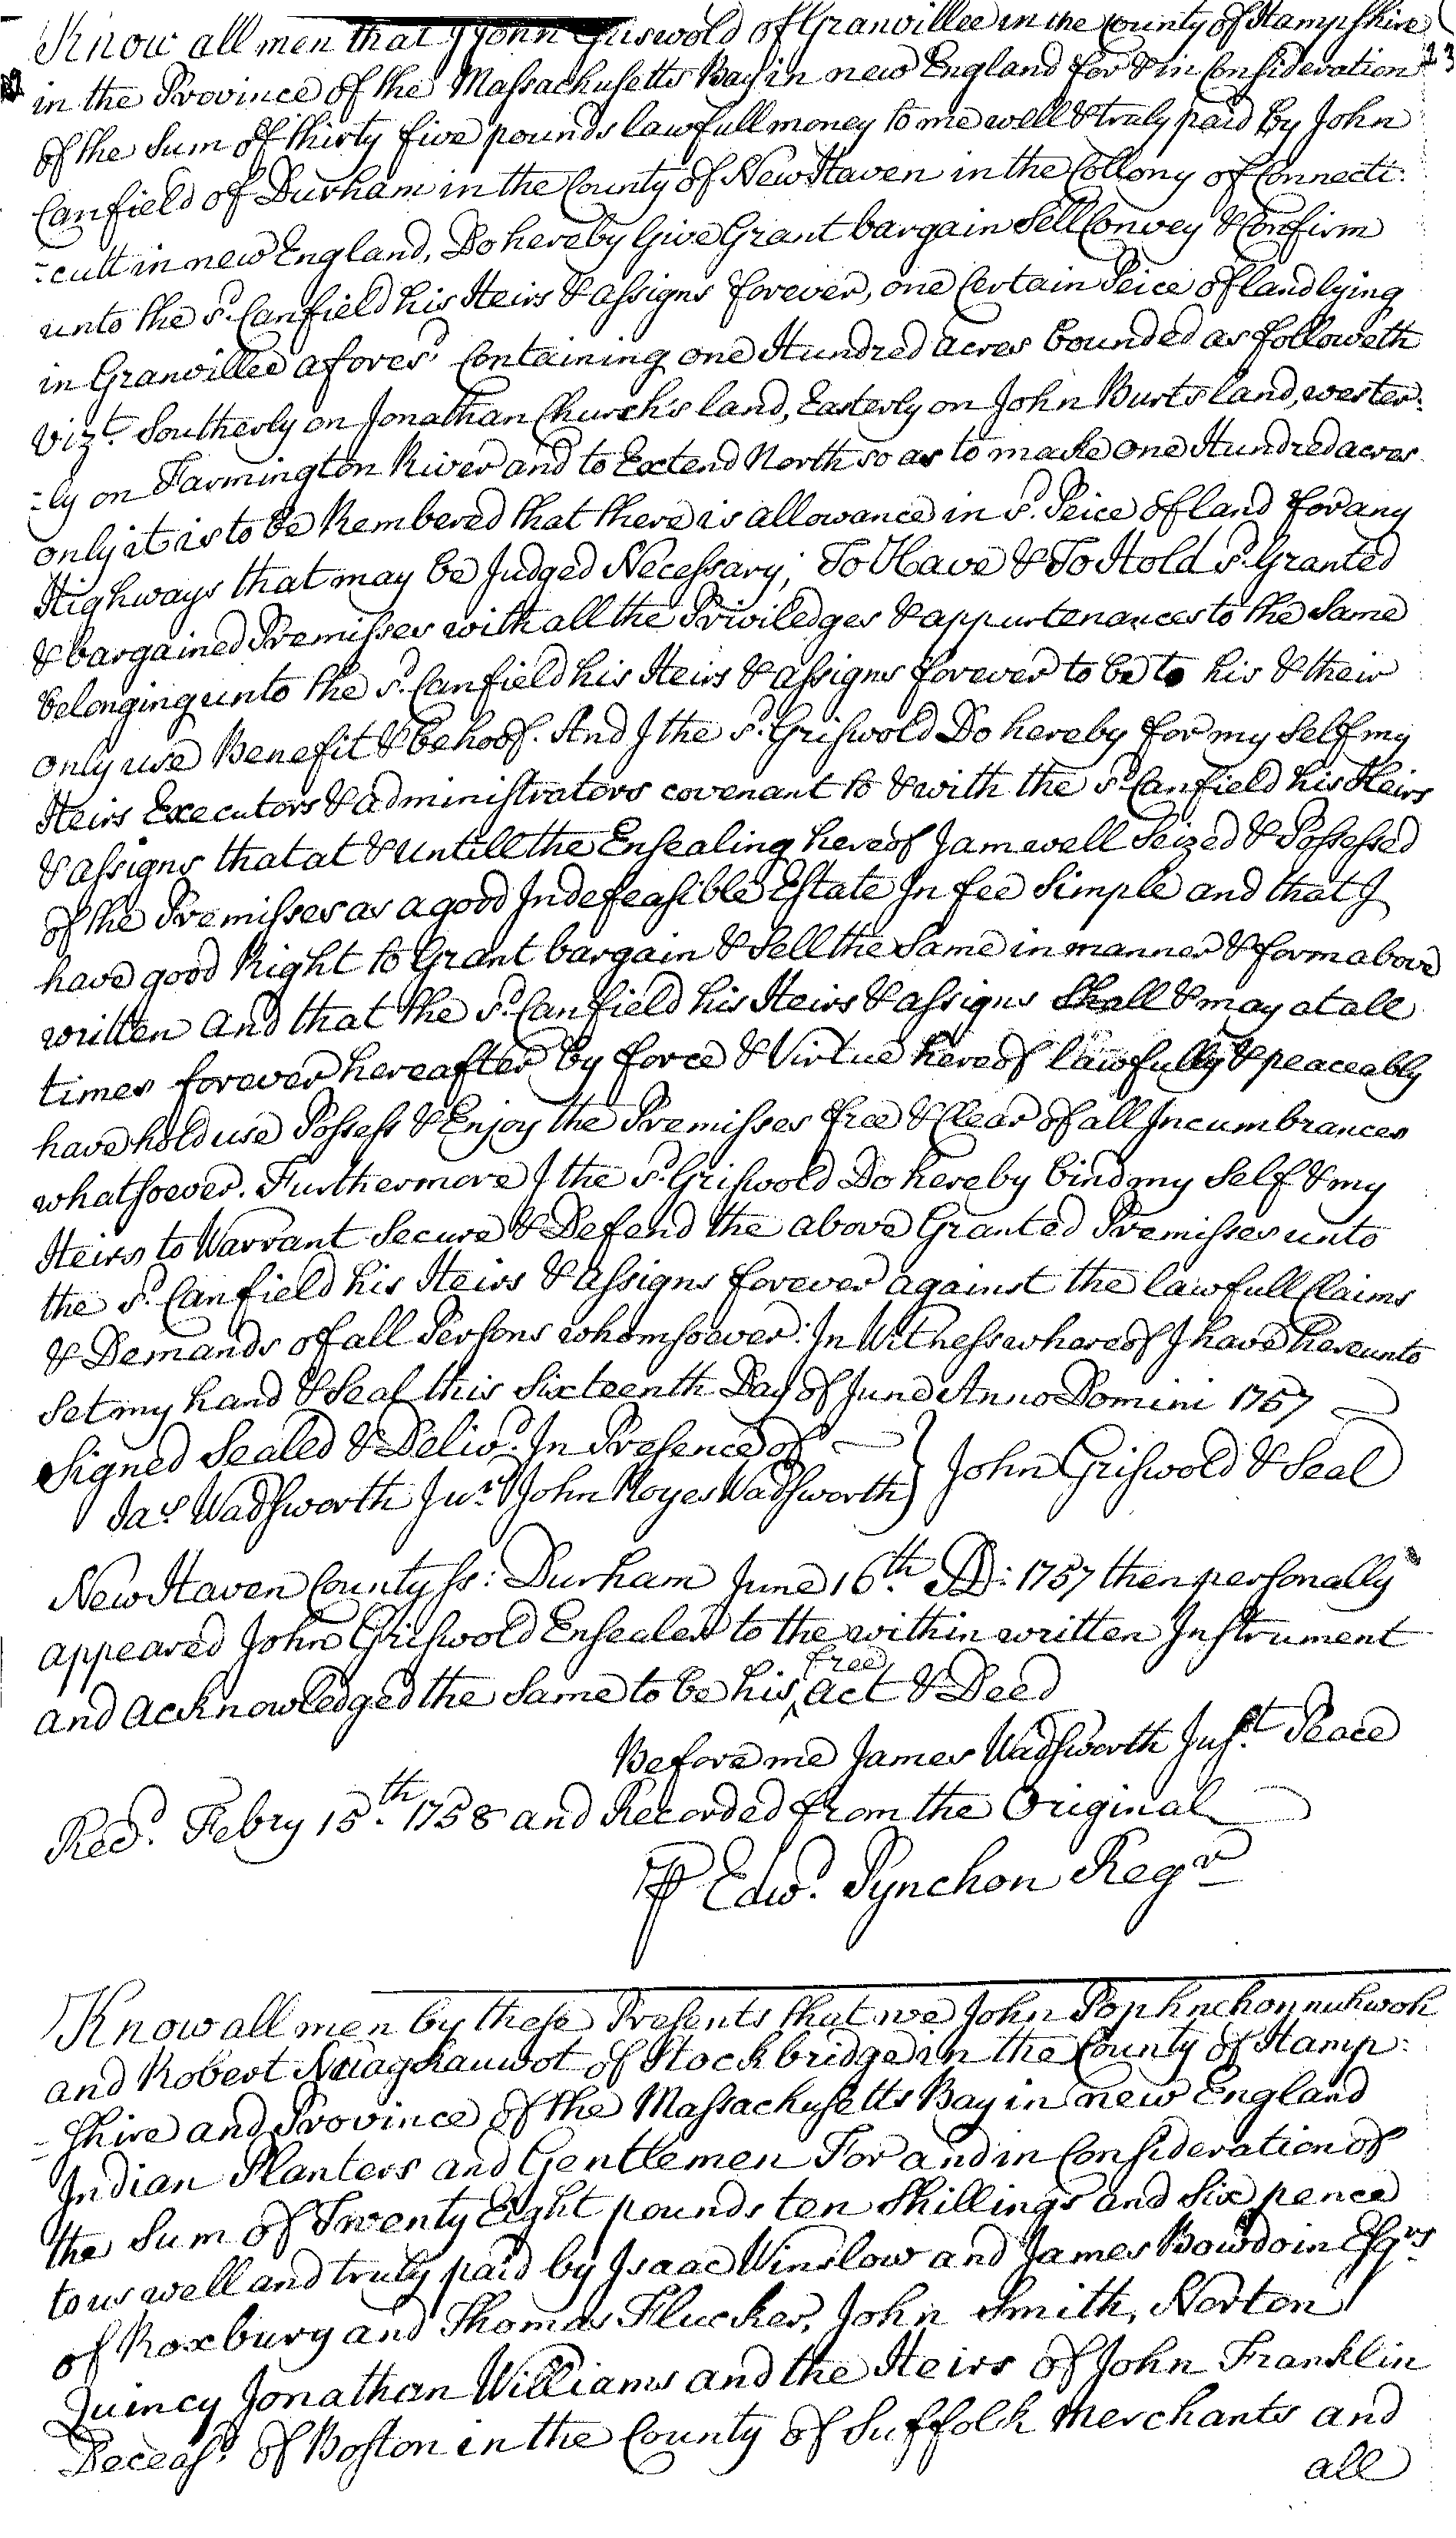 Know all men that I John Griswold of Granvillee in the County of Hampshire
in the Province of the Massachusetts Bay in new England for & in Consideration
of the Sum of thirty five pounds lawfull money to me well & truly paid by John
Canfield of Durham in the County of New Haven in the Collony of Connecti:
:cutt in new England, Do hereby Give Grant bargain Sell Convey & Confirm
unto the sd. Canfield his Heirs & assigns forever, one Certain Peice of land lying
in Granvillee aforesd Containing one Hundred acres bounded as followeth
vizt. Southerly on Jonathan Church's land, Easterly on John Burts land, wester:
:ly on Farmington River and to Extend North so as to make one Hundred acres
only it is to be Rembered that there is allowance in sd. Peice of land for any
Highways that may be Judged Necessary; To Have & To Hold sd. Granted
& bargained Premisses with all the Priviledges & appurtenances to the Same
belonging unto the sd. Canfield his Heirs & assigns forever to be to his & their
only use Benefit & behoof. And I the sd. Griswold Do hereby for my Self my
Heirs Executors & administrators covenant to & with the sd Canfield his Heirs
& assigns that at & untill the Ensealing hereof I am well Seized & Possessed
of the Premisses as a good Indefeasible Estate In fee Simple and that I
have good Right to Grant bargain & Sell the Same in manner & form above
written and that the sd. Canfield his Heirs & assigns Shall & may at all
times forever hereafter by force & Virtue hereof lawfully & peaceably
have hold use Possess & Enjoy the Premisses free & Clear of all Incumbrances
whatsoever. Furthermore I the sd. Griswold Do hereby bind my Self & my
Heirs to Warrant Secure & Defend the above Granted Premisses unto
the sd. Canfield his Heirs & assigns forever against the lawfull Claims
& Demands of all Persons whomsoever: In Witness whereof I have hereunto
Set my hand & Seal this Sixteenth Day of June Anno Domini 1757
Signed Sealed & Delivd. In Presence of } John Griswold & Seal
Jas. Wadsworth Junr. John Noyes Wadsworth
New Haven County ss: Durham June 16th. AD: 1757 then personally
appeared John Griswold Ensealer to the within written Instrument
and acknowledged the Same to be his ^free act & Deed
Before me James Wadsworth Just. Peace
Recd. Febry 15th. 1758 and Recorded from the Original
P Edwd. Pynchon Regr
Know all men by these Presents that we John Pophnehonnuhwoh
and Robert of Stockbridge in the County of Hamp:
:shire and Province of the Massachusetts Bay in new England
Indian Planters and Gentlemen For and in Consideration of
the Sum of Twenty Eight pounds ten Shillings and Six pence
to us well and truly paid by Isaac Winslow and James Bowdoin Esqrs
of Roxbury and Thomas Flucker, John Smith, Norton
Quincy Jonathan Williams and the Heirs of John Franklin
Deceasd. of Boston in the County of Suffolk Merchants and
all